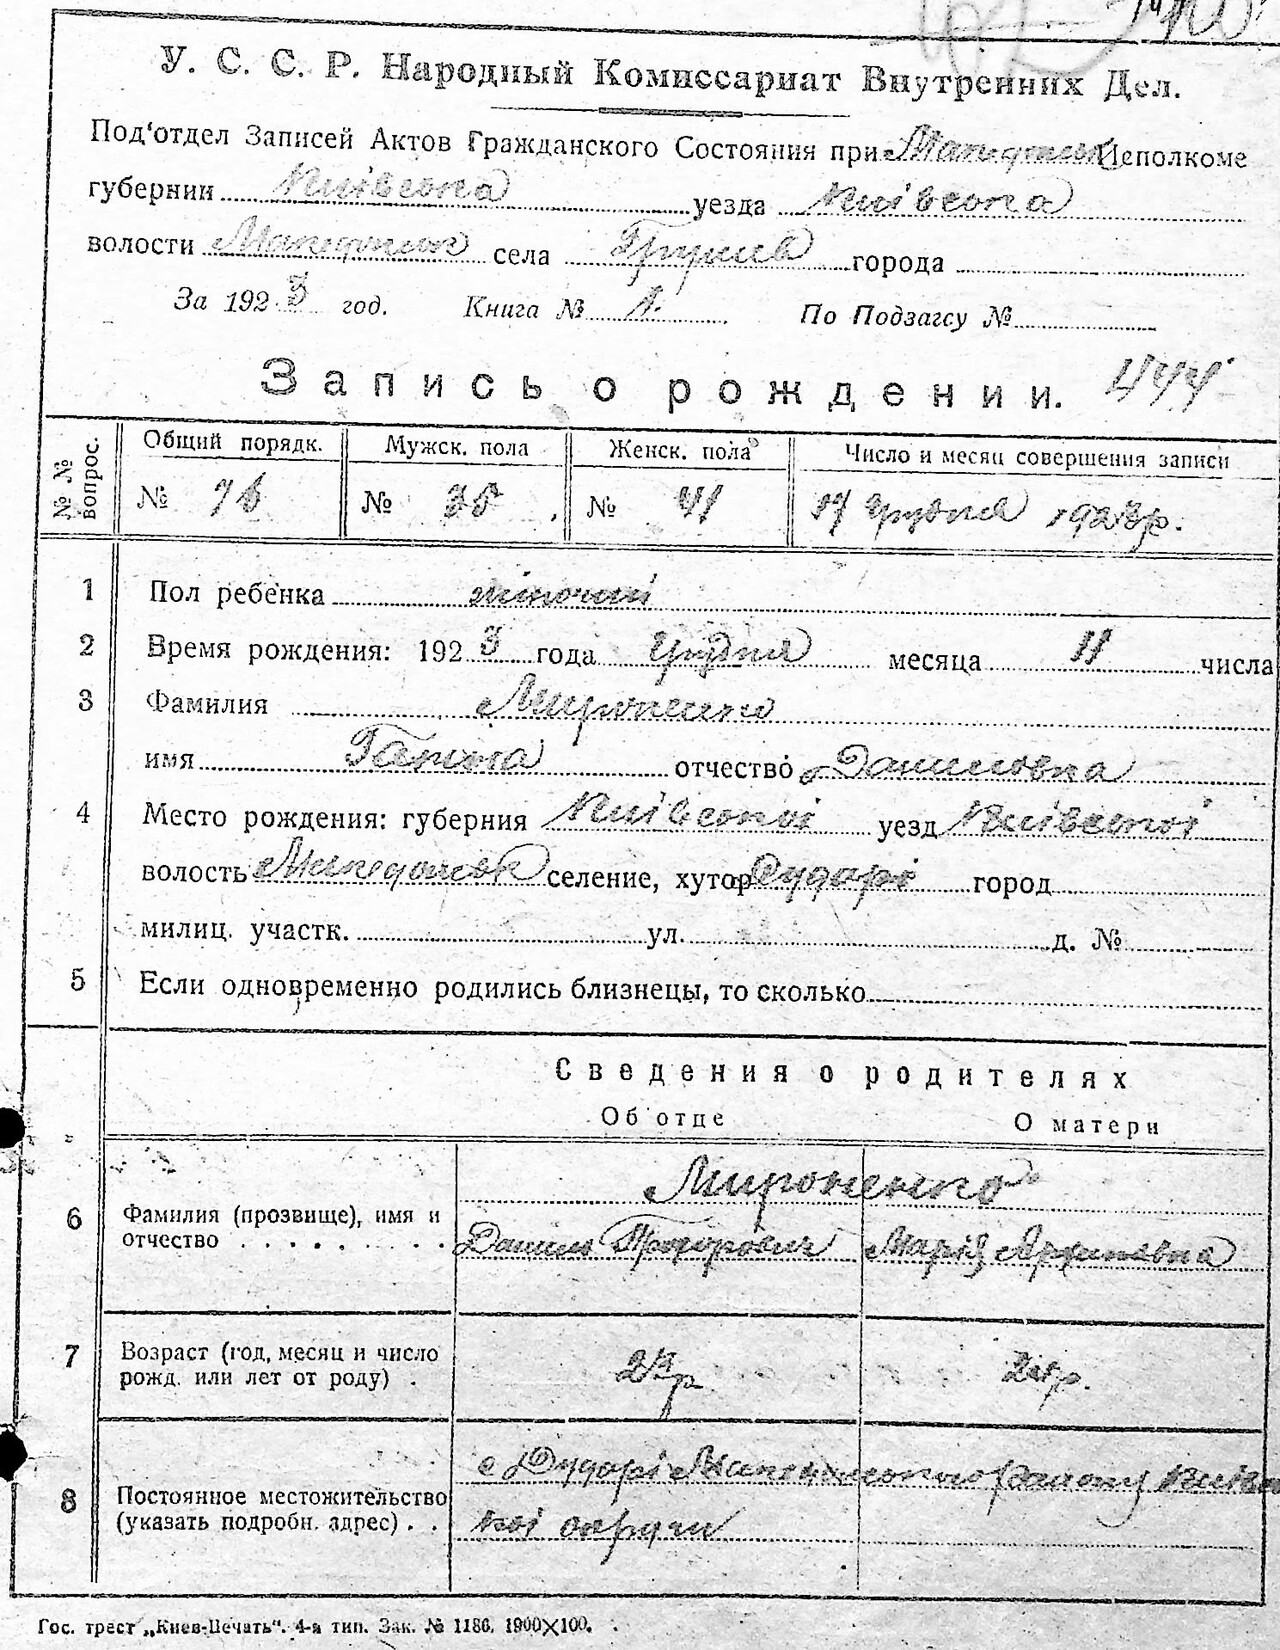 У. С. С. Р. Народный Комиссариат Внутренних Дел.
Под'отдел Записей Актов Гражданского Состояния при Исполкоме
губернии Київська уезда Київська
волости села Грушев города
За 1923 год. Книга № 1. По Подзагсу №
Запись о рождении. 444
№ № вопрос.
Общий порядк. Мужск. пола Женск. пола Число и месяц совершения записи
№ 76 № 35 № 41 17 Грудня 1923 р.
1 Пол ребенка жіночий
2 Время рождения: 1923 года Грудня месяца 11 числа
3 Фамилия Мироненко
имя Ганна отчество Даниловна
4 Место рождения: губерния Київськоі уезд Київськоі
волость селение, хутор Дударі город
милиц. участк. ул. д. №
5 Если одновременно родились близнецы, то сколько
Сведения о родителях
Об отце О матери
Мироненко
6 Фамилия (прозвище), имя и отчество Данило Прохорович Марія Архиповна
7 Возраст (год, месяц и число рожд. или лет от роду)
с Дударі району
8 Постоянное местожительство (указать подробн. адрес) коі округи
Гос. трест „Киев-Печать“. 4-я тип. Зак. № 1186. 1900×100.